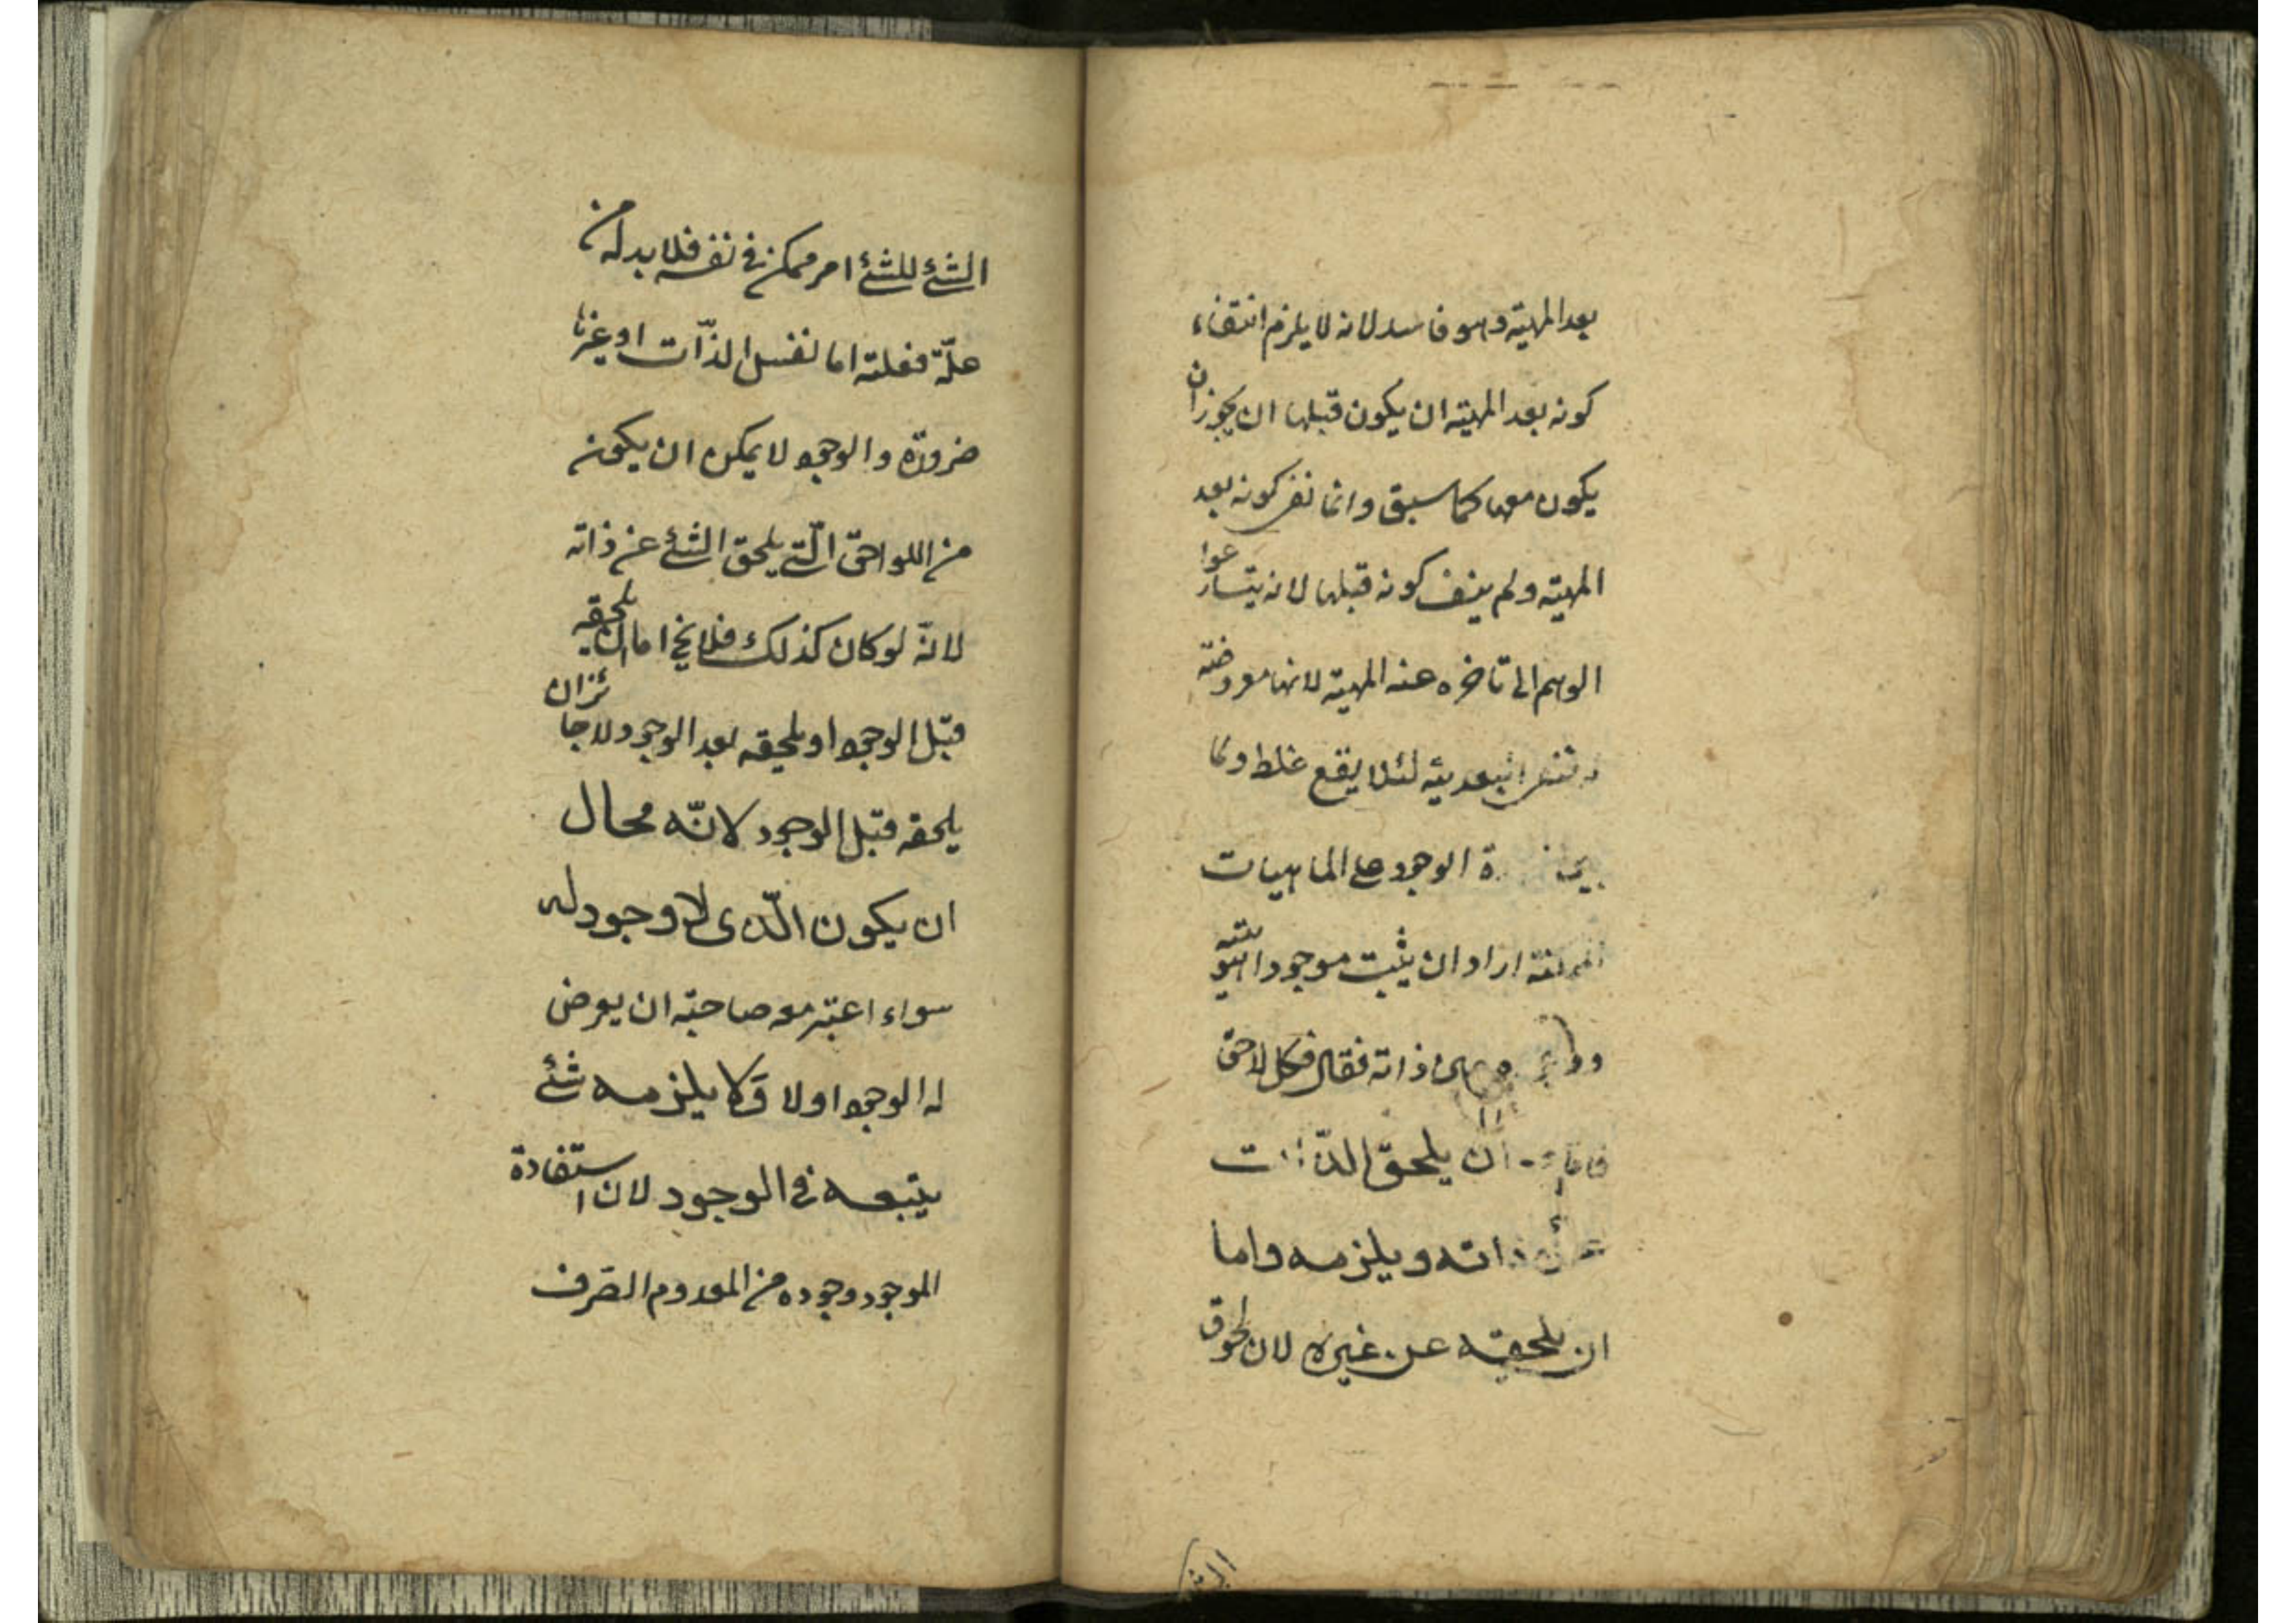 بعد المهية وهو فاسد لانه لا يلزم انتفاء
كونه بعد المهية ان يكون قبلها ان يجوز ان
يكون معها كما سبق وانما نفى كونه بعد
المهية ولم ينف كونه قبلها لانه يتسارعوا
الوهم الى تاخره عنه المهية لانها معروضة
البعدية لئلا يقع غلط ولما
الوجود على الماهيات
اراد ان يثبت موجودا هويته
ذاته فقال فكل لاحق
فاما ان يلحق الذات
عن ذاته ويلزمه واما
ان يلحقه عن غيره لان لحوق
الشئ للشئ امر ممكن فى نفسه فلا بد له من
علّة فعلته اما نفس الذّات او غيرها
ضرورة والوجود لا يمكن ان يكون
من اللواحق الّتى يلحق الشئ عن ذاته
لانّه لو كان كذلك فلا يخ اما ان يلحقه
قبل الوجود او يلحقه بعد الوجود ولا جائز ان
يلحقه قبل الوجود لانّه محال
ان يكون الّذى لا وجود له
سواء اعتبر معه صاحبه ان يعرض
له الوجود اولا وَلا يلزمه شئ
يتبعه فى الوجود لان استفادة
الموجود وجوده من المعدوم الصّرف